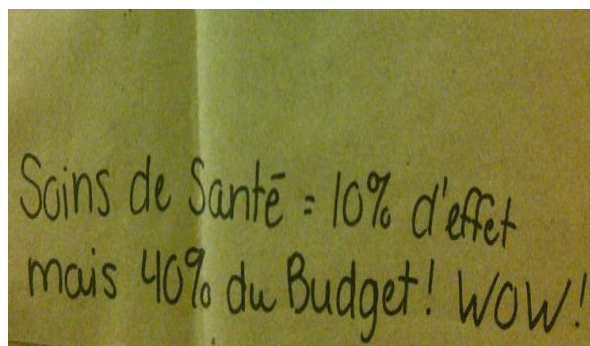 Soins de Santé = 10% d'effet
mais 40% du Budget! WOW!